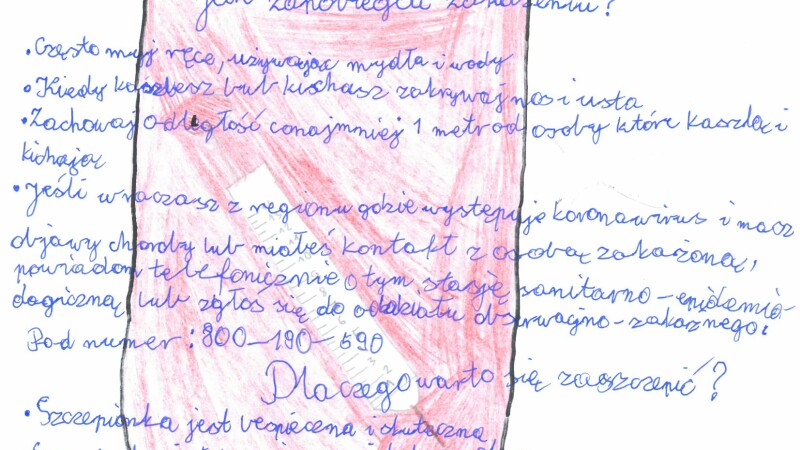 jak zapobiegać zakażeniu?
• Często myj ręce, używając mydła i wody
• Kiedy kaszlesz lub kichasz zakrywaj nos i usta
• Zachowaj odległość conajmniej 1 metr od osoby które kaszlą i
kichają
• Jeśli wracasz z regionu gdzie występuje koronawirus i masz
objawy choroby lub miałeś kontakt z osobą zakażoną,
powiadom telefonicznie o tym stację sanitarno-epidemio-
logiczną lub zgłoś się do oddziału obserwacyjno-zakaźnego.
Pod numer: 800-190-590
Dlaczego warto się zaszczepić?
• Szczepionka jest bespieczna i skuteczna